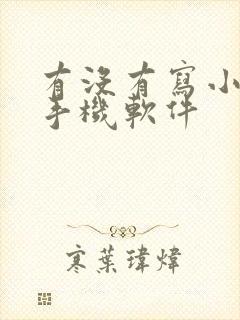 有没有寫小
手機軟件
寒葉瑋煒